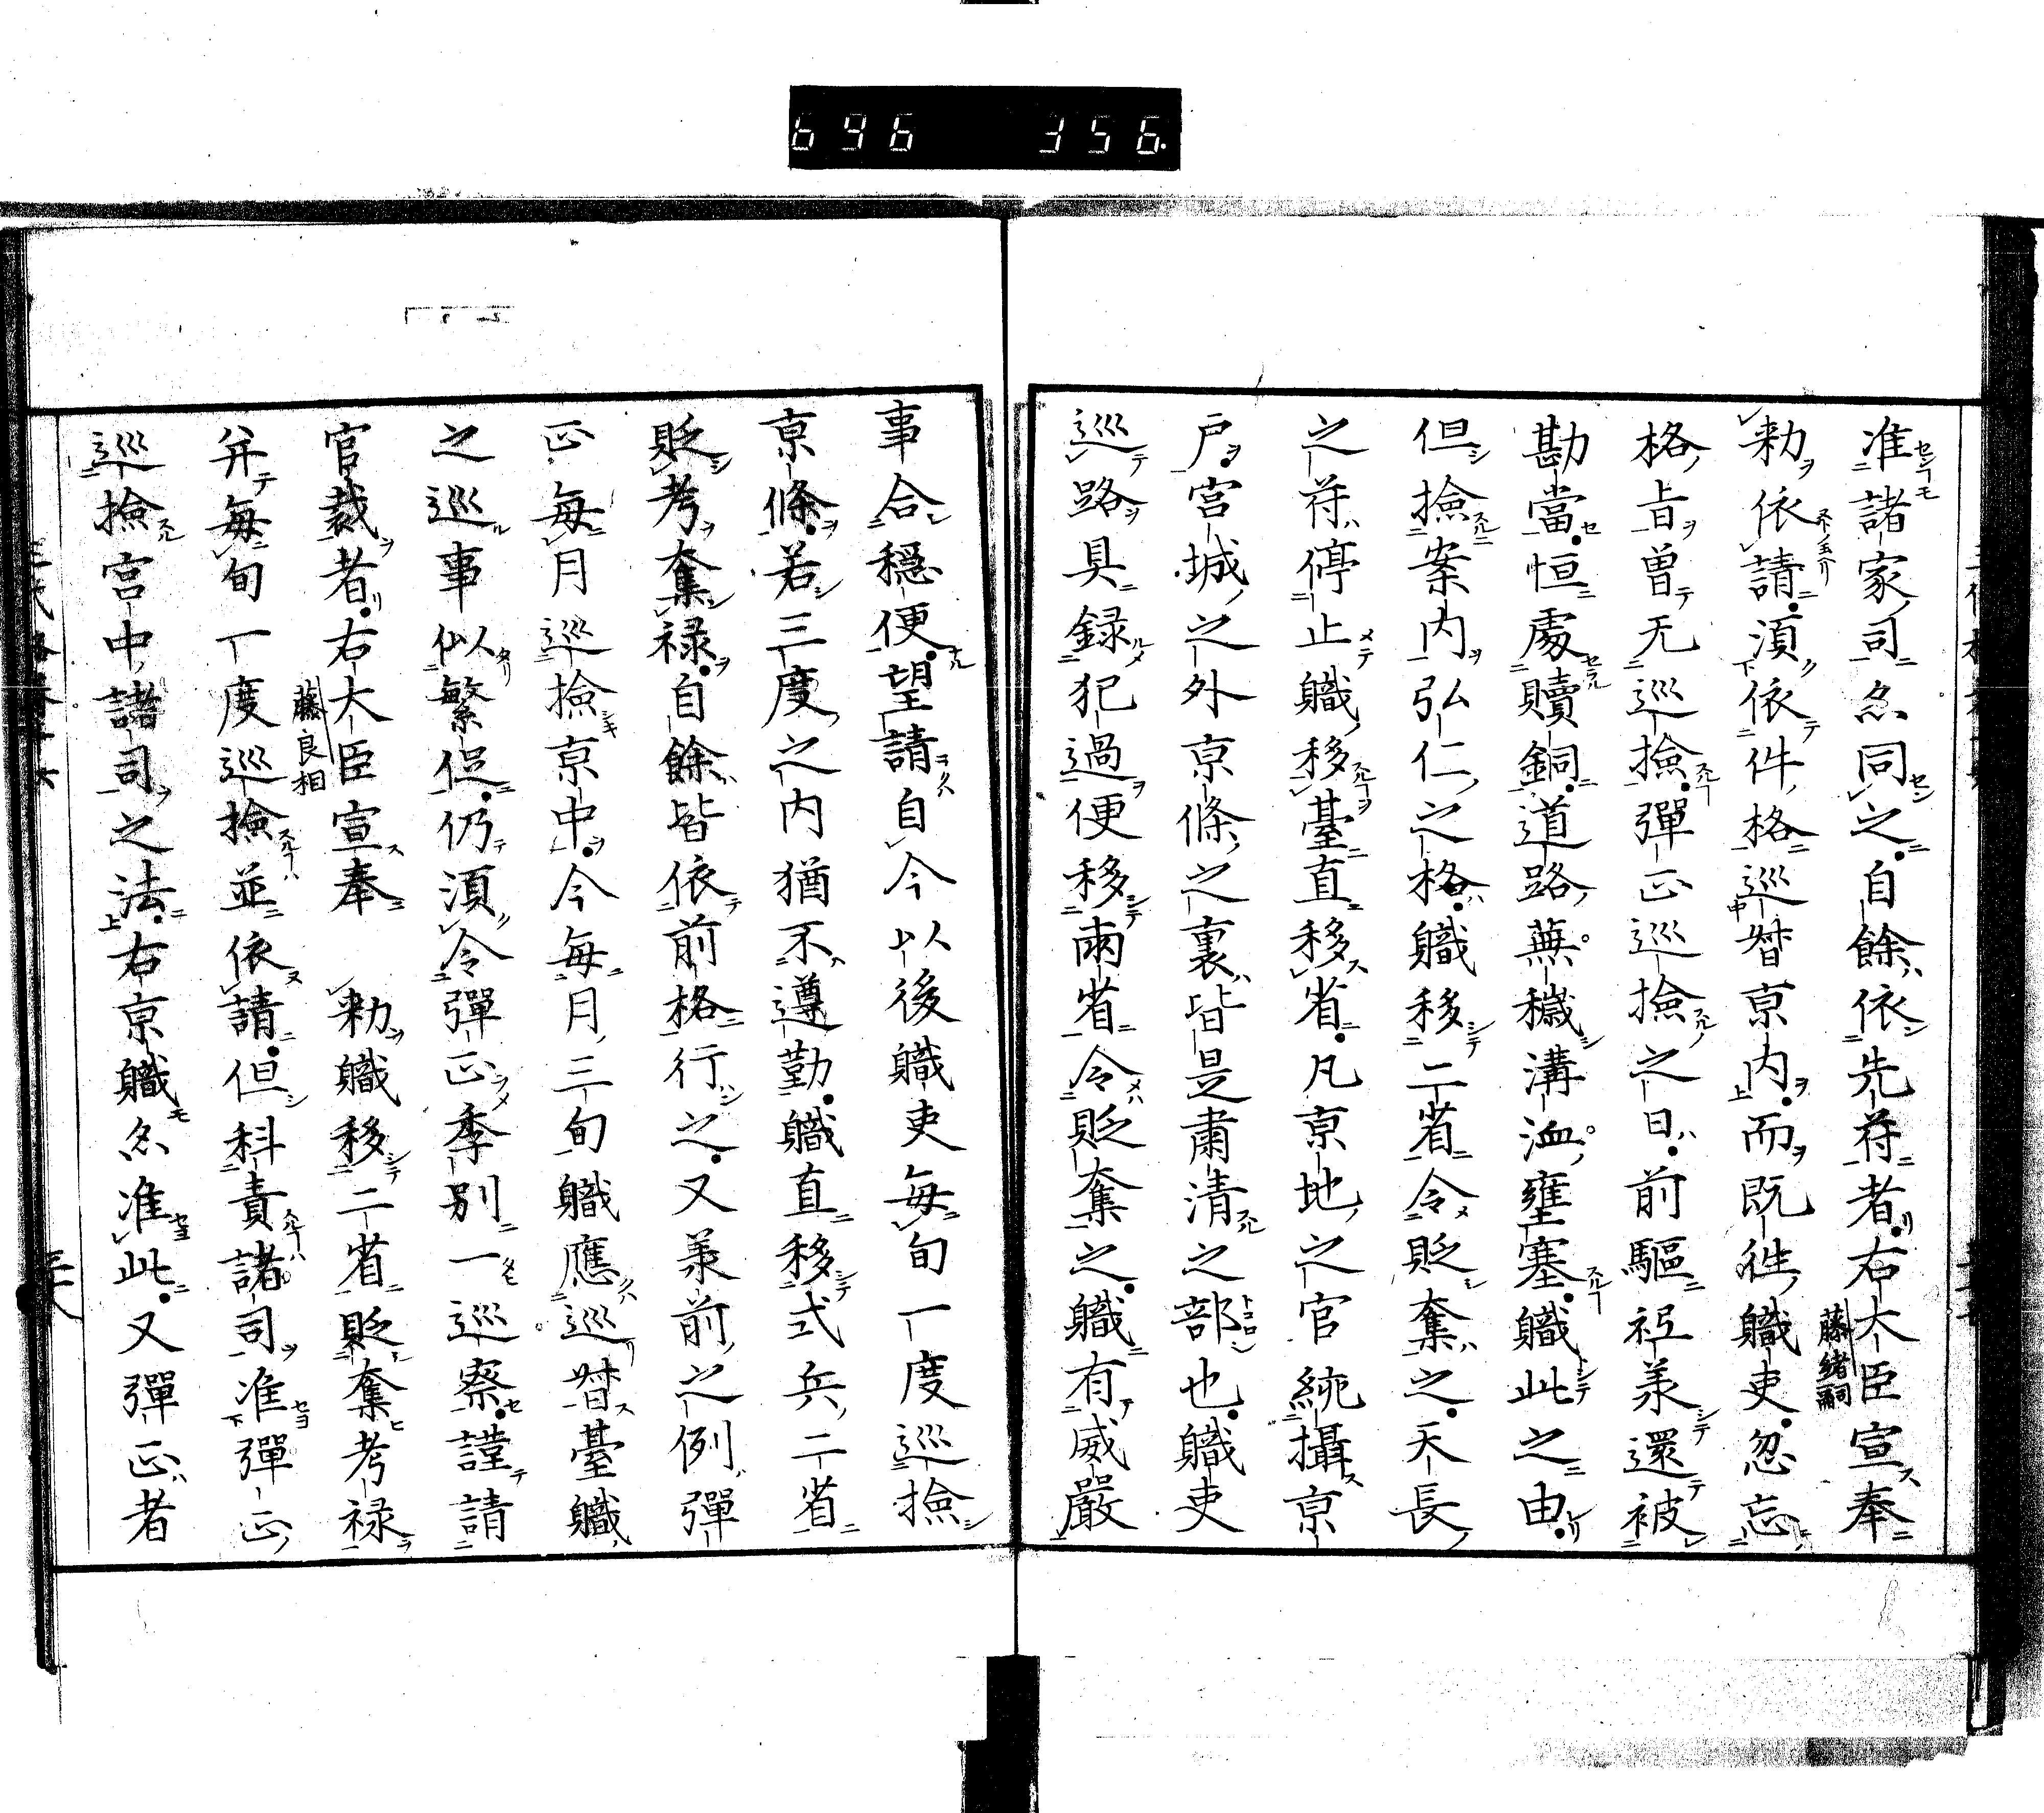 696 356
准諸家司忽同之自餘依先符者右大臣宣奉
藤緒嗣
勅依請須依件格巡督京内而既徃職吏忽忘
格旨曽无巡撿彈正巡撿之日前驅祗羕還被
勘當恒處贖銅道路蕪穢溝洫壅塞職此之由
但撿案内弘仁之格職移二省令貶奪之天長
之符停止職移臺直移省凡京地之官統攝京
戸宮城之外京條之裏皆是肅清之部也職吏
巡路具録犯過便移兩省令貶奪之職有威嚴
事合穩便望請自今以後職吏毎旬一度巡撿
京條若三度之内猶不遵勤職直移式兵二省
貶考奪禄自餘皆依前格行之又羕前之例彈
正毎月巡撿京中今毎月三旬職應巡督臺職
之巡事似繁促仍須令彈正季別一巡察謹請
官裁者右大臣宣奉 勅職移二省貶奪考禄
藤良相
并毎旬一度巡撿並依請但科責諸司准彈正
巡撿宮中諸司之法右京職忽准此又彈正者